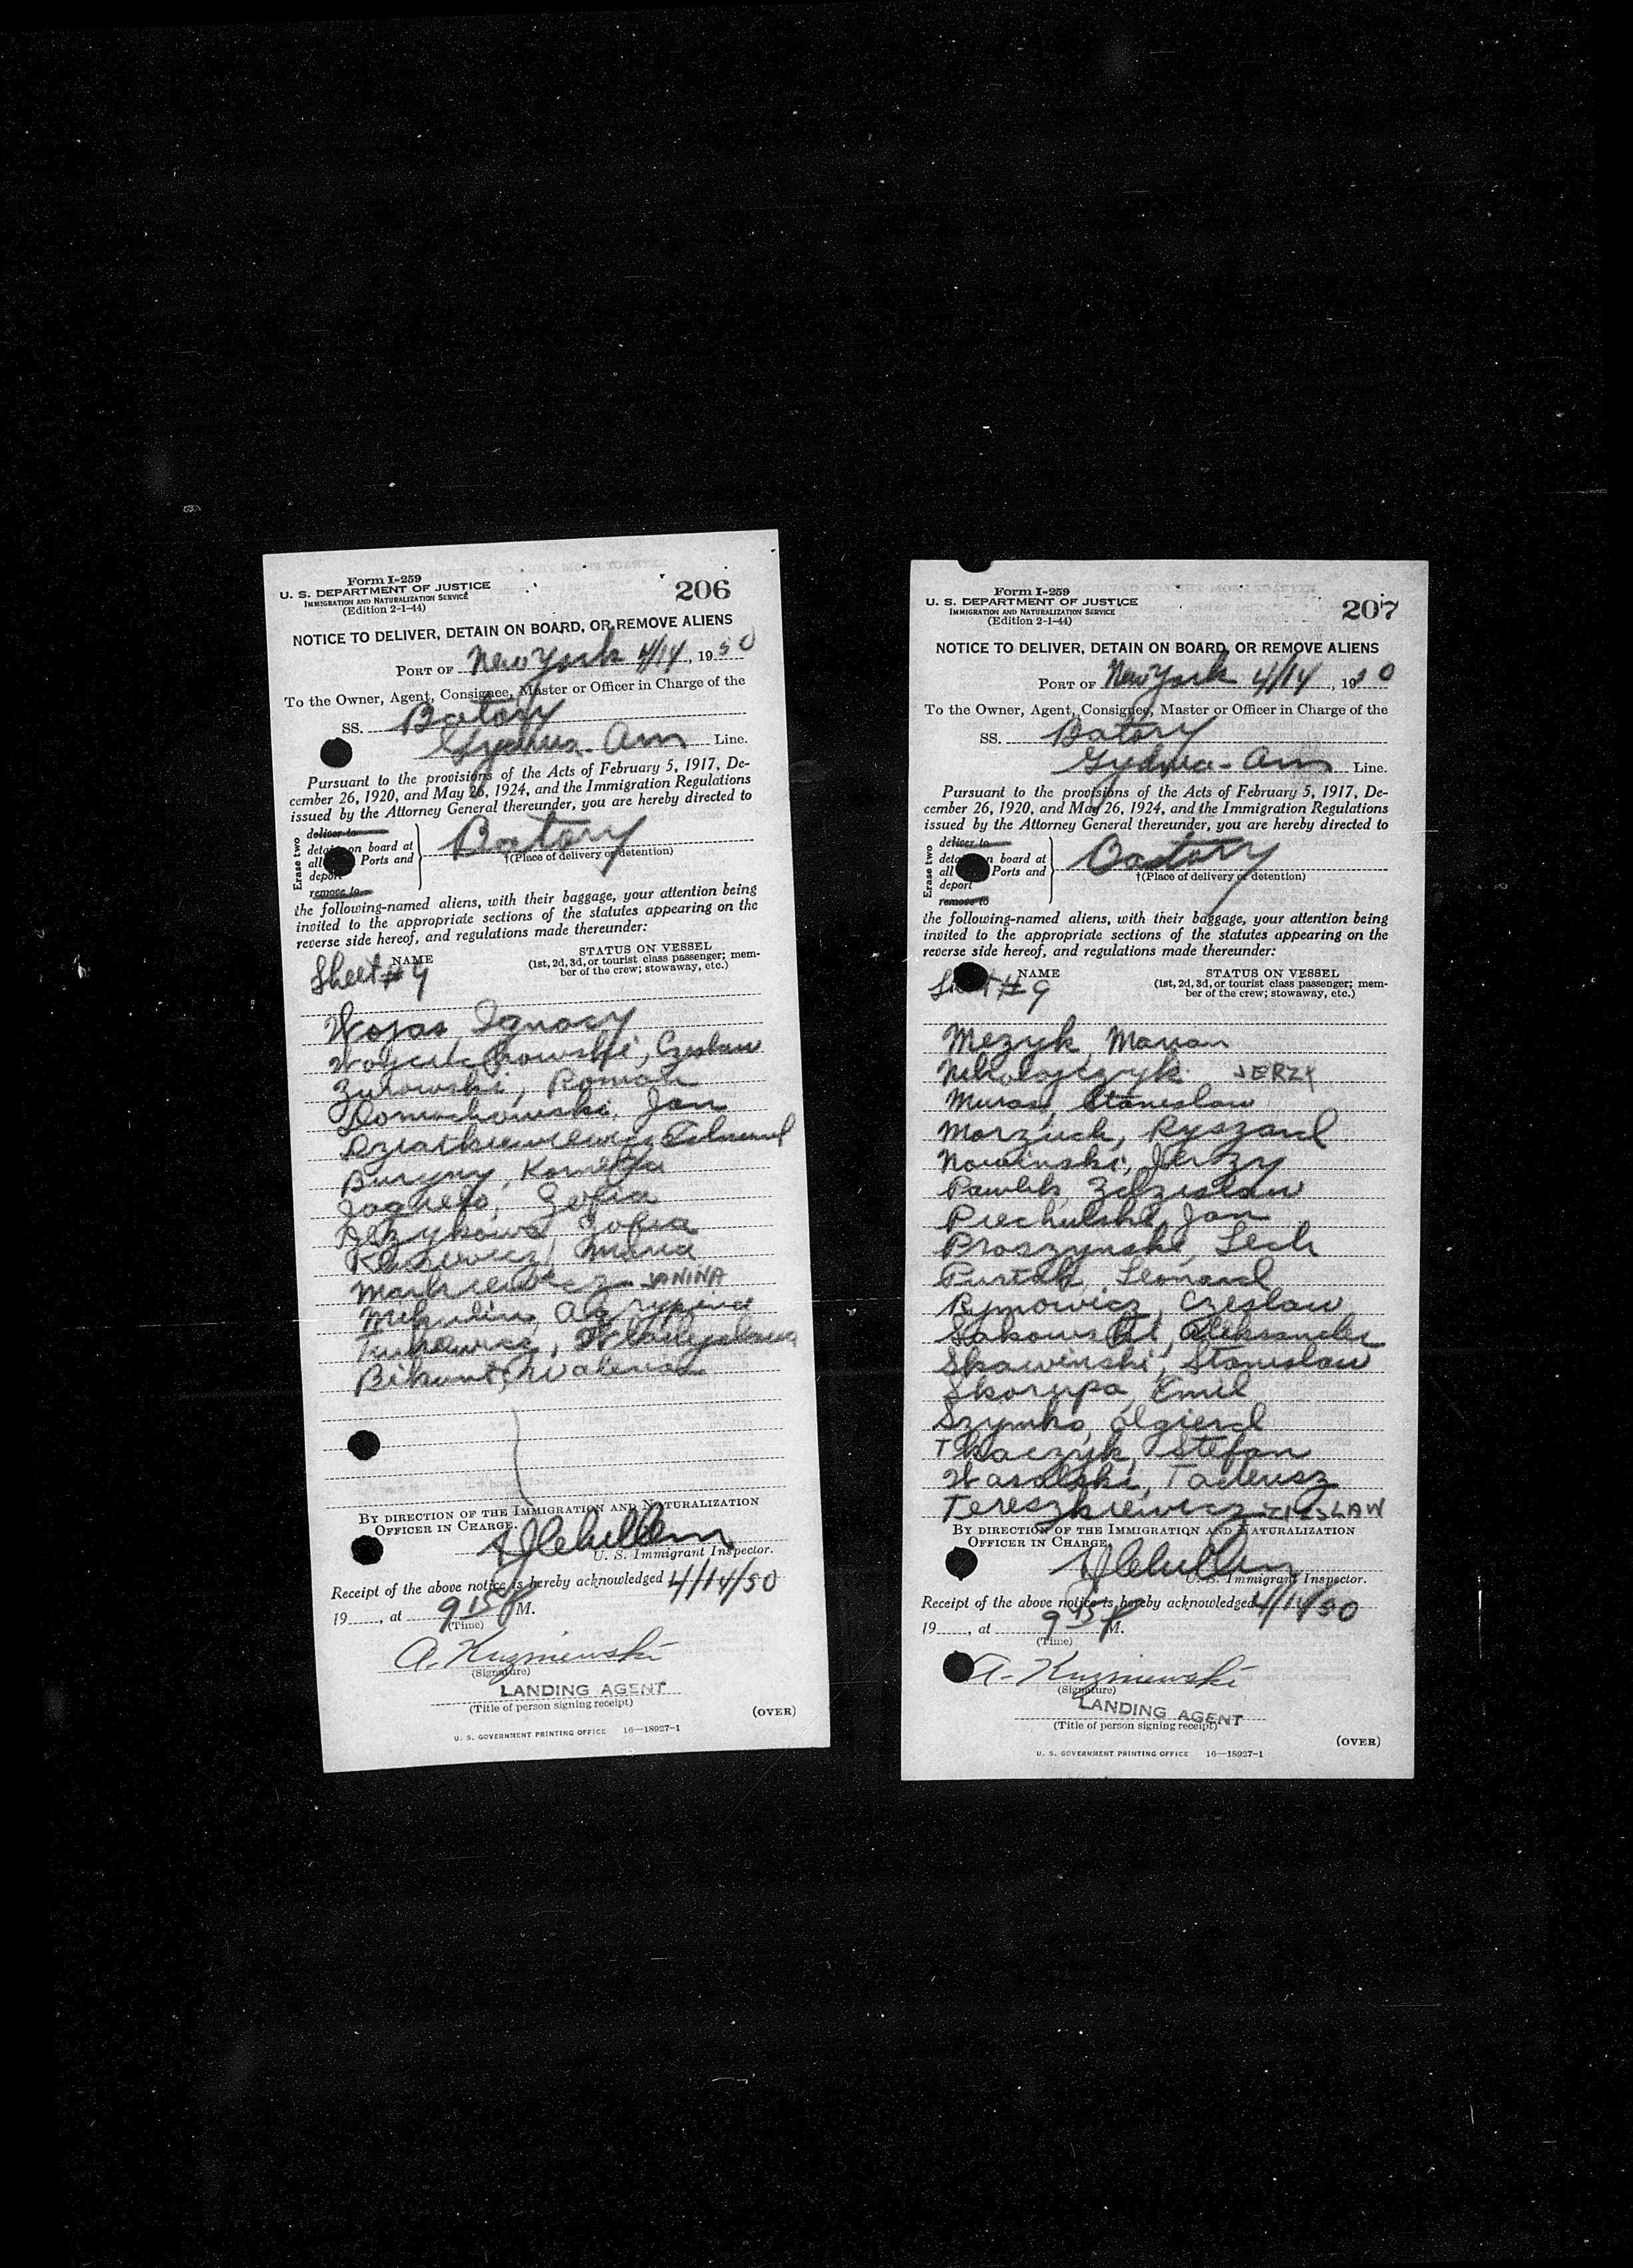 Form I-259
U. S. DEPARTMENT OF JUSTICE
IMMIGRATION AND NATURALIZATION SERVICE
(Edition 2-1-44)
206
NOTICE TO DELIVER, DETAIN ON BOARD, OR REMOVE ALIENS
PORT OF New York 4/14, 1950
To the Owner, Agent, Consignee, Master or Officer in Charge of the
SS. Batory
Gydnia-Am Line.
Pursuant to the provisions of the Acts of February 5, 1917, De-
cember 26, 1920, and May 26, 1924, and the Immigration Regulations
issued by the Attorney General thereunder, you are hereby directed to
Erase two
deliver to
detain on board at
all Ports and
deport
remove to
Batory
†(Place of delivery or detention)
the following-named aliens, with their baggage, your attention being
invited to the appropriate sections of the statutes appearing on the
reverse side hereof, and regulations made thereunder:
NAME
STATUS ON VESSEL
(1st, 2d, 3d, or tourist class passenger; mem-
ber of the crew; stowaway, etc.)
Sheet #9
Wojas, Ignacy
Czeslaw
Zurowski, Roman
Domachowski, Jan
Edmund
Buryny, Kornelja
Zofia
Jezykowa Zofia
Maria
Markiewicz JANINA
Wladyslawa
Walerian
BY DIRECTION OF THE IMMIGRATION AND NATURALIZATION
OFFICER IN CHARGE.
U. S. Immigrant Inspector.
Receipt of the above notice is hereby acknowledged 4/14/50
19____, at 9 15 P M.
(Time)
A. Kuzniewski
(Signature)
LANDING AGENT
(Title of person signing receipt)
(OVER)
U. S. GOVERNMENT PRINTING OFFICE 16—18927-1
Form I-259
U. S. DEPARTMENT OF JUSTICE
IMMIGRATION AND NATURALIZATION SERVICE
(Edition 2-1-44)
207
NOTICE TO DELIVER, DETAIN ON BOARD, OR REMOVE ALIENS
PORT OF New York 4/14, 1950
To the Owner, Agent, Consignee, Master or Officer in Charge of the
SS. Batory
Gydnia-Am Line.
Pursuant to the provisions of the Acts of February 5, 1917, De-
cember 26, 1920, and May 26, 1924, and the Immigration Regulations
issued by the Attorney General thereunder, you are hereby directed to
Erase two
deliver to
detain on board at
all Ports and
deport
remove to
Batory
†(Place of delivery or detention)
the following-named aliens, with their baggage, your attention being
invited to the appropriate sections of the statutes appearing on the
reverse side hereof, and regulations made thereunder:
NAME
STATUS ON VESSEL
(1st, 2d, 3d, or tourist class passenger; mem-
ber of the crew; stowaway, etc.)
Sheet #9
Mezyk, Marian
Mikolajczyk JERZY
Muras, Stanislaw
Marzuch, Ryszard
Nowinski, Jerzy
Pawlik, Zdzislaw
Piechulski, Jan
Proszynski, Lech
Pustak, Leonard
Rymowicz, Czeslaw
Sakowski, Aleksander
Skawinski, Stanislaw
Skorupa, Emil
Szymko, Olgierd
Tkaczyk, Stefan
Wasalski, Tadeusz
Tereszkiewicz
BY DIRECTION OF THE IMMIGRATION AND NATURALIZATION
OFFICER IN CHARGE.
U. S. Immigrant Inspector.
Receipt of the above notice is hereby acknowledged 4/14/50
19____, at 9 15 P M.
(Time)
A. Kuzniewski
(Signature)
LANDING AGENT
(Title of person signing receipt)
(OVER)
U. S. GOVERNMENT PRINTING OFFICE 16—18927-1